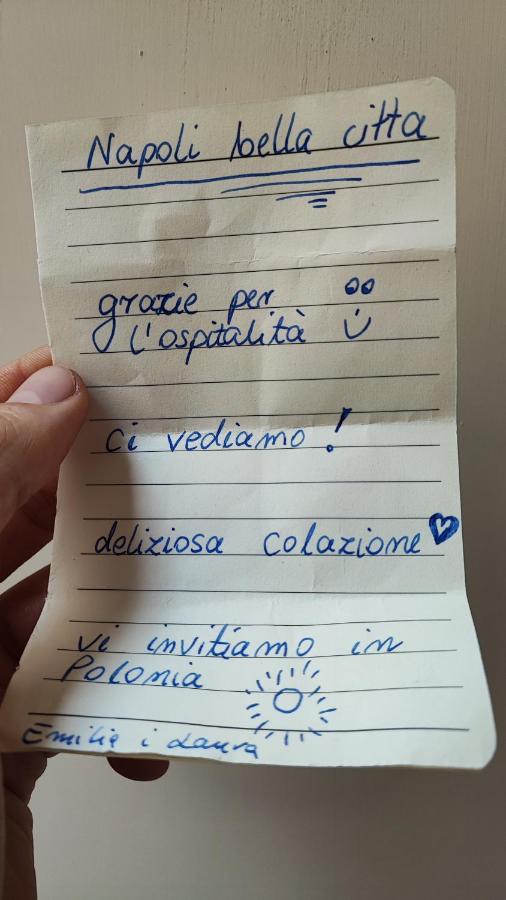 Napoli bella citta
grazie per
l'ospitalità
ci vediamo!
deliziosa colazione
vi invitiamo in
Polonia
Emilia i Laura